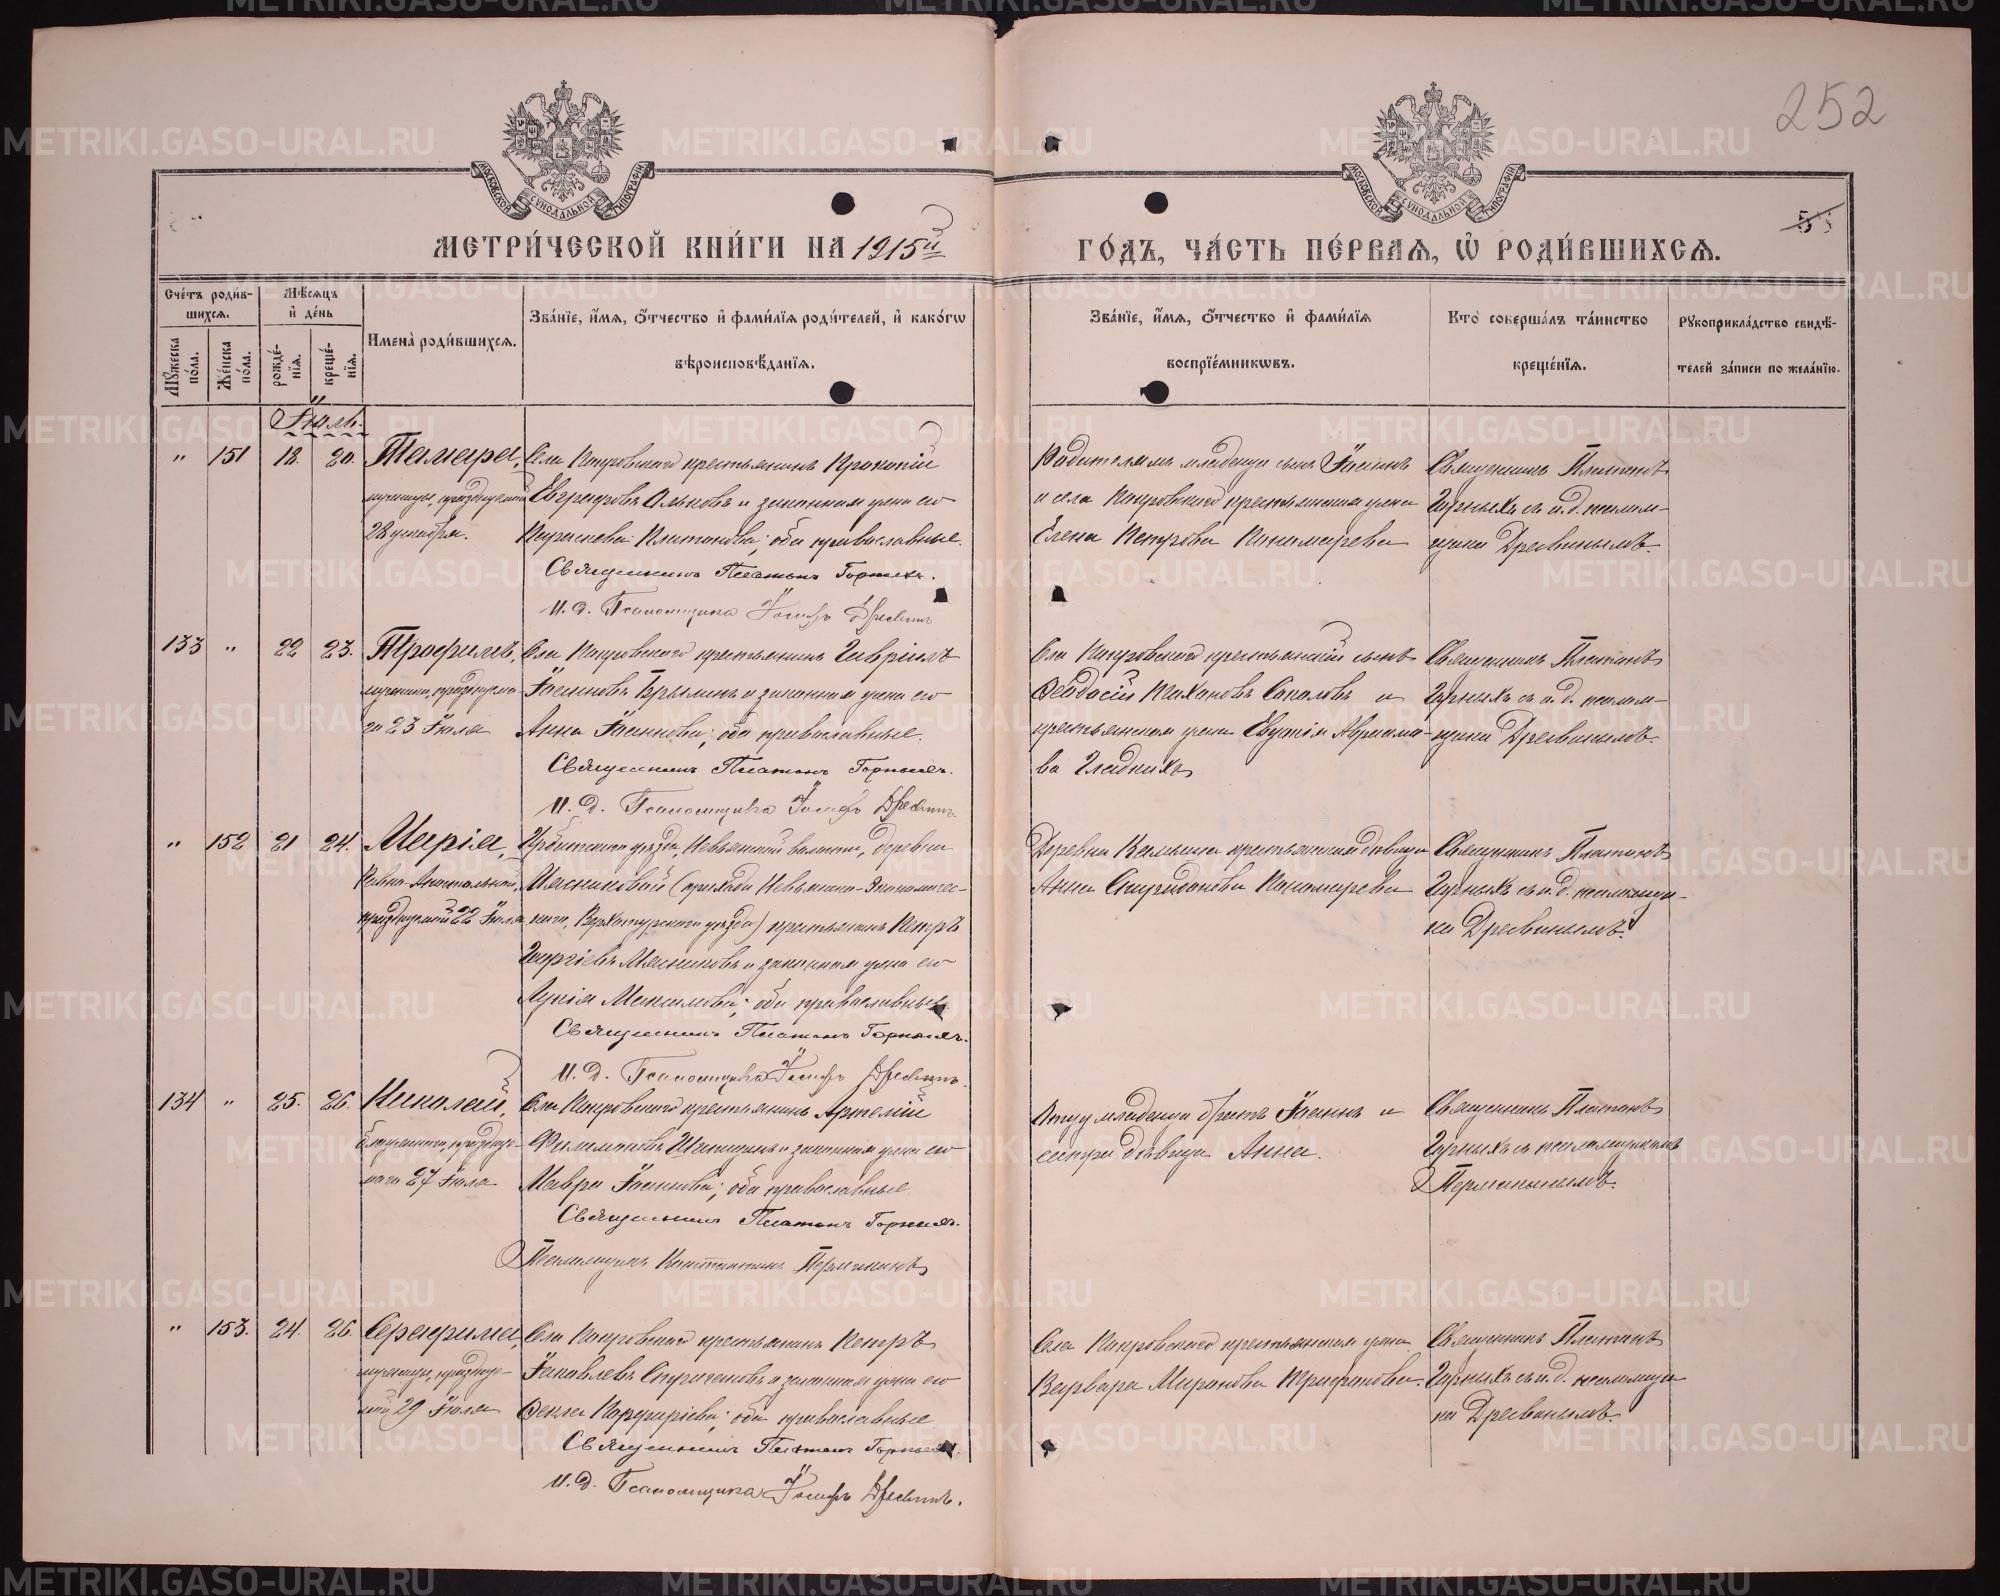 252
МОСКОВСКОЙ СѴНОДАЛЬНОЙ ТИПОГРАФІИ
МОСКОВСКОЙ СѴНОДАЛЬНОЙ ТИПОГРАФІИ
МЕТРИ́ЧЕСКОЙ КНИ́ГИ НА 1915й
ГО́ДЪ, ЧА́СТЬ ПЕ́РВАѦ, Ѽ РОДИ́ВШИХСѦ.
Сче́тъ роди́в-
шихсѧ.
Мꙋ́жеска по́ла.
Же́нска по́ла.
Мѣ́сѧцъ
и҆ де́нь
рожде́-
нїѧ.
креще́-
нїѧ.
Имена̀ роди́вшихсѧ.
Зва́нїе, и҆́мѧ, о҆́тчество и҆ фами́лїѧ роди́телей, и҆ како́гѡ
вѣроисповѣ́данїѧ.
Зва́нїе, и҆́мѧ, о҆́тчество и҆ фами́лїѧ
воспрїе́мникѡвъ.
Кто̀ соверша́лъ та́инство
креще́нїѧ.
Рꙋкоприкла́дство свидѣ́-
телей за́писи по жела́нїю.
Іюль.
" 151 18. 20. Тамара,
мученицы, празднуемой
28 декабря.
Села Покровского крестьянинъ Прокопій
Евграфовъ и законная жена его
Параскева Платонова; оба православные.
Священникъ Платонъ Горныхъ.
И. д. Псаломщика Іосифъ Дресвинъ
Родителямъ младенца сынъ Іоаннъ
и села Покровского крестьянская жена
Елена Петрова Пономарева
Священникъ Платонъ
Горныхъ съ и. д. псалом-
щика Дресвинымъ.
133 " 22 23. Трофимъ,
мученика, празднуема-
го 23 Іюля
Села Покровского крестьянинъ Гавріилъ
Іоанновъ Брылинъ и законная жена его
Анна Іоаннова; оба православные.
Священникъ Платонъ Горныхъ.
И. д. Псаломщика Іосифъ Дресвинъ.
Села Покровского крестьянскій сынъ
Феодосій Соколовъ и
крестьянская жена Евгенія Авраамо-
ва Гладкихъ
Священникъ Платонъ
Горныхъ съ и. д. псалом-
щика Дресвинымъ.
" 152 21 24. Марія,
Равно-Апостольной,
празднуемой 22 Іюля
Ирбитского уѣзда, Невьянской волости, деревни
Мясниковой (прихода Невьянско-Экономичес-
каго, Верхотурского уѣзда) крестьянинъ Петръ
Георгіевъ Мясниковъ и законная жена его
Лукія Максимова; оба православные.
Священникъ Платонъ Горныхъ.
И. д. Псаломщика Іосифъ Дресвинъ.
Деревни крестьянская дѣвица
Анна Спиридонова Пономарева
Священникъ Платонъ
Горныхъ съ и. д. псаломщи-
ка Дресвинымъ.
134 " 25. 26. Николай,
празднуе-
маго 27 Іюля
Села Покровского крестьянинъ Артемій
Филимоновъ и законная жена его
Мавра Іоаннова; оба православные.
Священникъ Платонъ Горныхъ.
Псаломщикъ Константинъ Пермякинъ
Отцу младенца братъ Іоаннъ и
сестра дѣвица Анна.
Священникъ Платонъ
Горныхъ съ псаломщикомъ
Пермякинымъ.
" 153. 24. 26. Серафима,
мученицы, празднуе-
мой 29 Іюля
Села Покровского крестьянинъ Петръ
Іаковлевъ и законная жена его
Фекла Порфиріева; оба православные
Священникъ Платонъ Горныхъ.
И. д. Псаломщика Іосифъ Дресвинъ.
Села Покровского крестьянская жена
Варвара Миронова Трифонова.
Священникъ Платонъ
Горныхъ съ и. д. псаломщи
ка Дресвинымъ.
METRIKI.GASO-URAL.RU